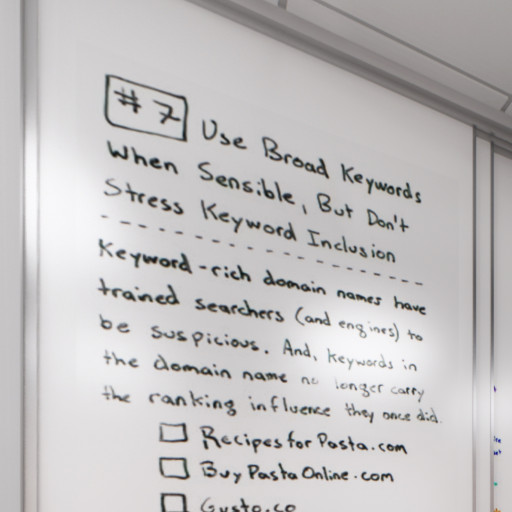 #7 Use Broad Keywords
When Sensible, But Don't
Stress Keyword Inclusion
Keyword-rich domain names have
trained searchers (and engines) to
be suspicious. And, keywords in
the domain name no longer carry
the ranking influence they once did.
RecipesforPasta.com
BuyPastaOnline.com
Gusto.co